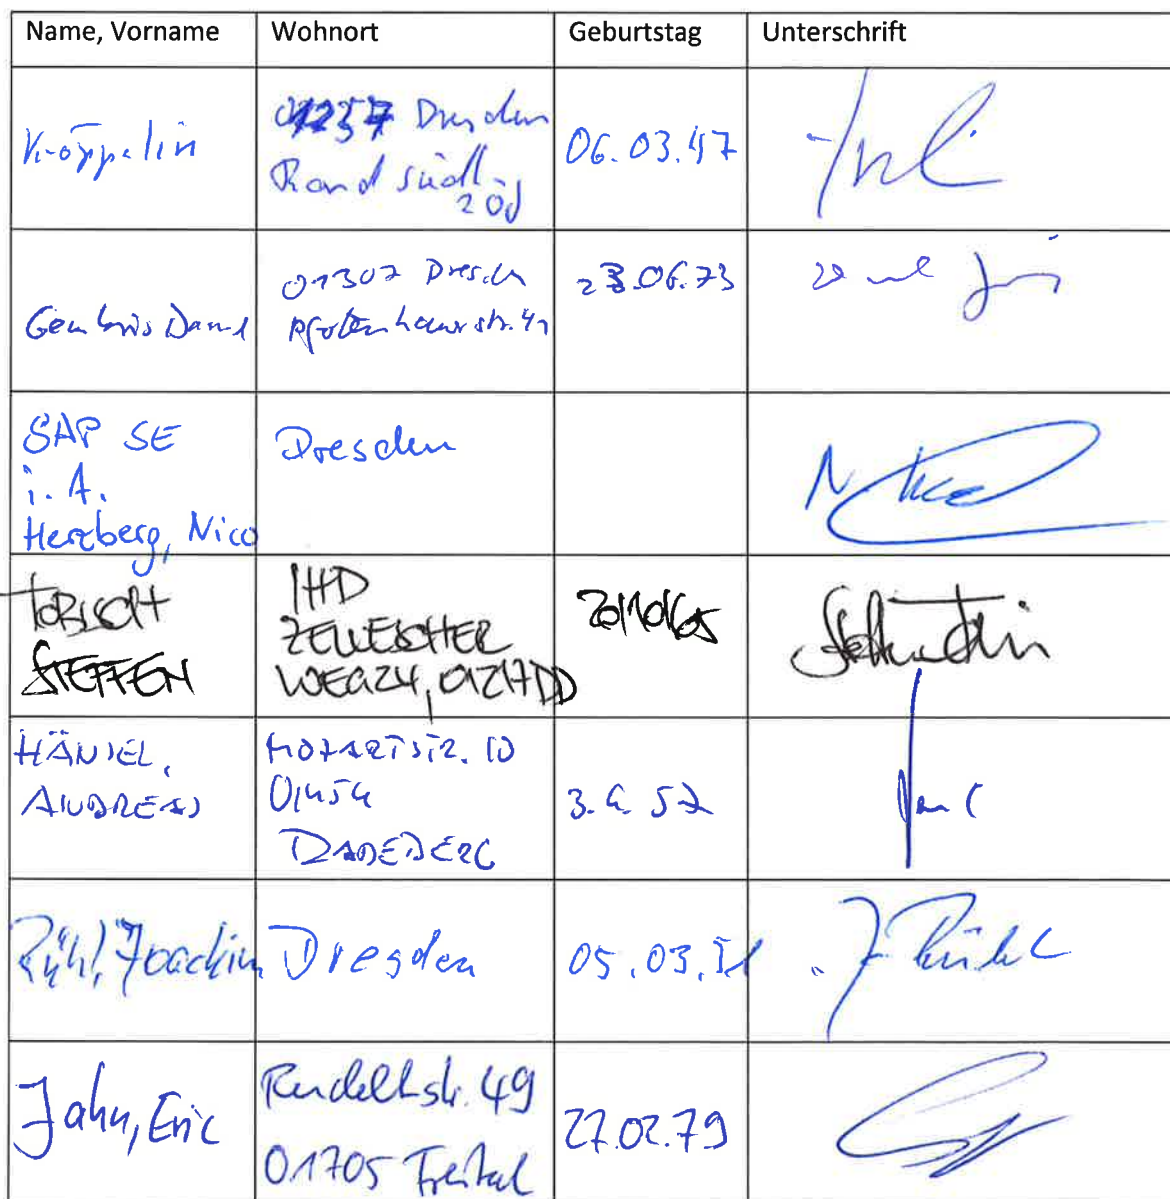 Name, Vorname Wohnort Geburtstag Unterschrift
Kröppelin
01237 Dresden
Randsiedl.
20d
06.03.47
Dan
01307 Dresden
Pfotenhauerstr. 41
23.06.73
SAP SE
i. A.
Herzberg, Nico
Dresden
TOBISCH
STEFFEN
IHD
ZELLESCHER
WEG 24, 01217 DD
20/10/65
HÄNSEL,
ANDREAS
MOZARTSTR. 10
01454
RADEBERG
3. 4. 57
Rühl, Joachim
Dresden
05.03.51
J. Rühl
Jahn, Eric
01705 Freital
27.02.79